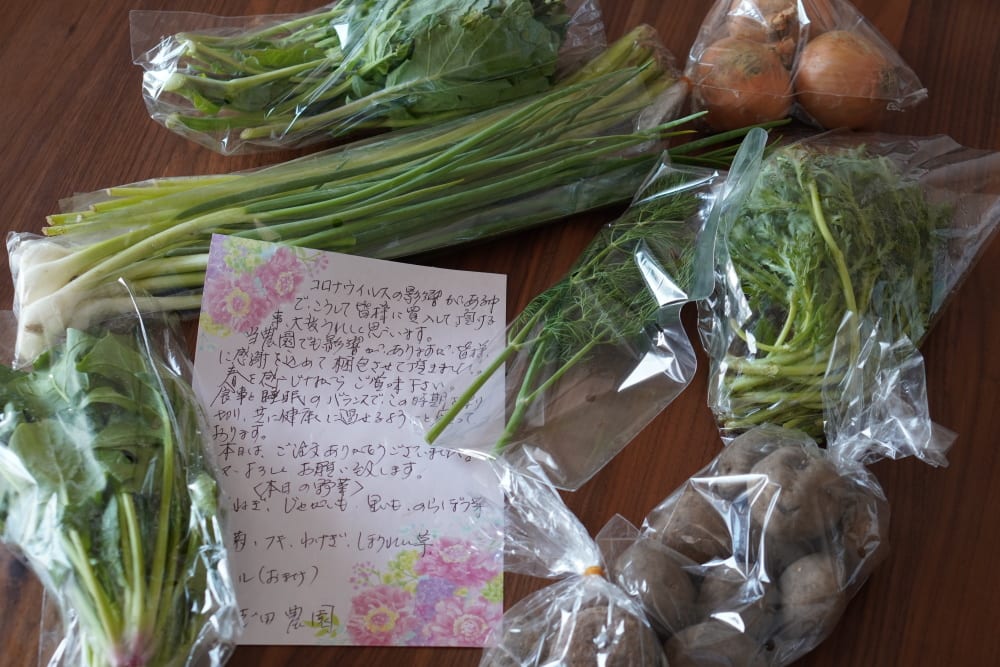 コロナウイルスの影響がある中
で、こうして皆様に買入して頂ける
事、大変うれしく思います。
当農園でも影響がありますが、皆様
に感謝を込めて梱包させて頂きました。
春を感じながらご賞味下さい。
食事と睡眠のバランスでこの時期をのり
切り、共に健康に過せるようにと願って
おります。
本日は、ご注文ありがとうございました。
よろしくお願い致します。
<本日の野菜>
ねぎ、じゃがいも、里いも、のらぼう菜
菊、フキ、わけぎ、ほうれん草
ル(おまけ)
田農園